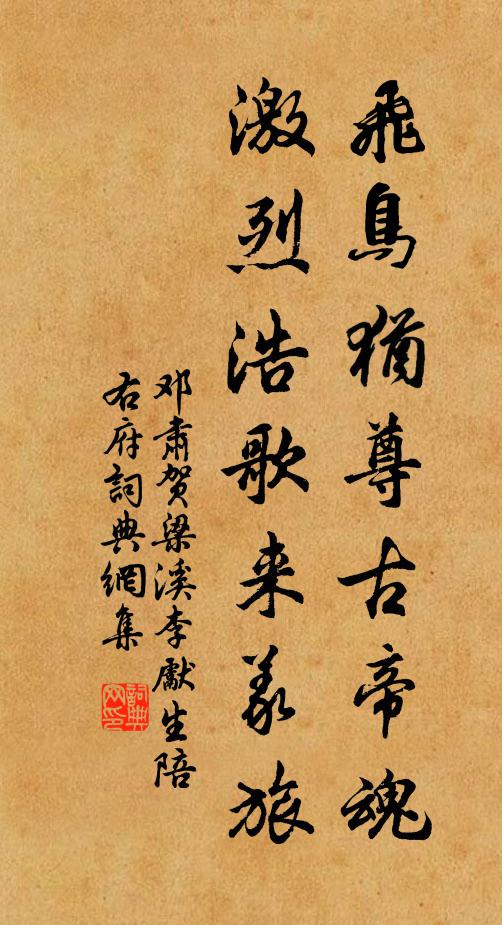 飛鳥猶尊古帝魂
激烈浩歌来義旅
邓肅贺梁溪李獻生陪
右府詞典網集
詞典
网印